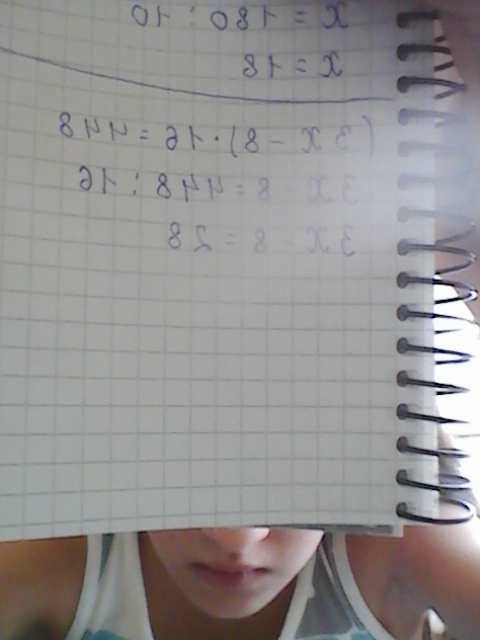 x = 180 : 10
x = 18
(3x - 8) · 16 = 448
3x - 8 = 448 : 16
3x - 8 = 28